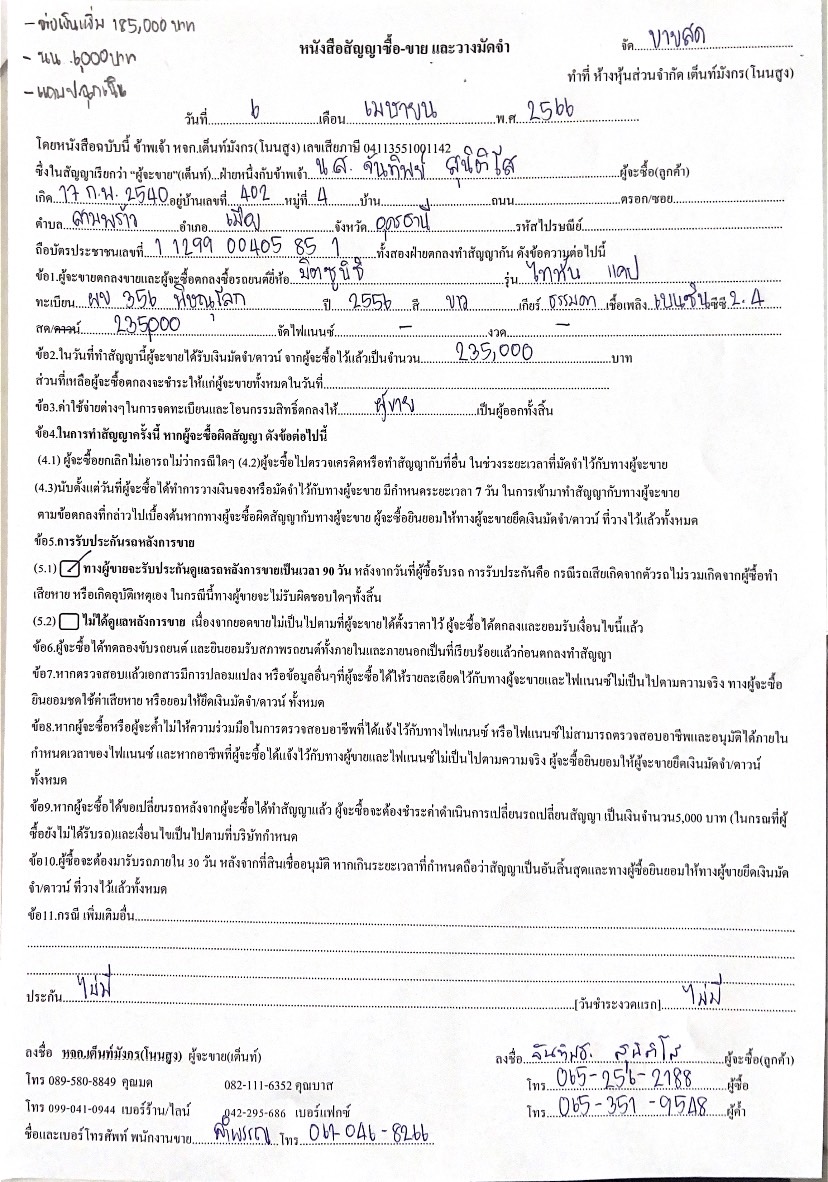 - ต่อเงินเพิ่ม 185,000 บาท
- นน 6,000 บาท
หนังสือสัญญาซื้อ-ขาย และวางมัดจำ
จัด ขายสด
ทำที่ ห้างหุ้นส่วนจำกัด เต็นท์มังกร(โนนสูง)
วันที่ 6 เดือน เมษายน พ.ศ. 2566
โดยหนังสือฉบับนี้ ข้าพเจ้า หจก.เต็นท์มังกร(โนนสูง) เลขเสียภาษี 04113551001142
ซึ่งในสัญญาเรียกว่า "ผู้จะขาย"(เต็นท์)...ฝ่ายหนึ่งกับข้าพเจ้า น.ส. จันทิพย์ สุนิติโส ผู้จะซื้อ(ลูกค้า)
เกิด 17 ก.พ. 2540 อยู่บ้านเลขที่ 402 หมู่ที่ 4 บ้าน ถนน ตรอก/ซอย
ตำบล สามพร้าว อำเภอ เมือง จังหวัด อุดรธานี รหัสไปรษณีย์
ถือบัตรประชาชนเลขที่ 1 1299 00405 85 1 ทั้งสองฝ่ายตกลงทำสัญญากัน ดังข้อความต่อไปนี้
ข้อ1.ผู้จะขายตกลงขายและผู้จะซื้อตกลงซื้อรถยนต์ยี่ห้อ มิตซูบิชิ รุ่น ไททัน แคป
ทะเบียน ผข 356 พิษณุโลก ปี 2556 สี ขาว เกียร์ ธรรมดา เชื้อเพลิง เบนซิน ซีซี 2.4
สด/ดาวน์ 235,000 จัดไฟแนนซ์ - งวด -
ข้อ2.ในวันที่ทำสัญญานี้ผู้จะขายได้รับเงินมัดจำ/ดาวน์ จากผู้จะซื้อไว้แล้วเป็นจำนวน 235,000 บาท
ส่วนที่เหลือผู้จะซื้อตกลงจะชำระให้แก่ผู้จะขายทั้งหมดในวันที่
ข้อ3.ค่าใช้จ่ายต่างๆในการจดทะเบียนและโอนกรรมสิทธิ์ตกลงให้ ผู้ขาย เป็นผู้ออกทั้งสิ้น
ข้อ4.ในการทำสัญญาครั้งนี้ หากผู้จะซื้อผิดสัญญา ดังข้อต่อไปนี้
(4.1) ผู้จะซื้อยกเลิกไม่เอารถไม่ว่ากรณีใดๆ (4.2)ผู้จะซื้อไปตรวจเครดิตหรือทำสัญญากับที่อื่น ในช่วงระยะเวลาที่มัดจำไว้กับทางผู้จะขาย
(4.3)นับตั้งแต่วันที่ผู้จะซื้อได้ทำการวางเงินจองหรือมัดจำไว้กับทางผู้จะขาย มีกำหนดระยะเวลา 7 วัน ในการเข้ามาทำสัญญากับทางผู้จะขาย
ตามข้อตกลงที่กล่าวไปเบื้องต้นหากทางผู้จะซื้อผิดสัญญากับทางผู้จะขาย ผู้จะซื้อยินยอมให้ทางผู้จะขายยึดเงินมัดจำ/ดาวน์ ที่วางไว้แล้วทั้งหมด
ข้อ5.การรับประกันรถหลังการขาย
(5.1) ทางผู้ขายจะรับประกันดูแลรถหลังการขายเป็นเวลา 90 วัน หลังจากวันที่ผู้ซื้อรับรถ การรับประกันคือ กรณีรถเสียเกิดจากตัวรถไม่รวมเกิดจากผู้ซื้อทำ
เสียหาย หรือเกิดอุบัติเหตุเอง ในกรณีนี้ทางผู้ขายจะไม่รับผิดชอบใดๆทั้งสิ้น
(5.2) ไม่ได้ดูแลหลังการขาย เนื่องจากยอดขายไม่เป็นไปตามที่ผู้จะขายได้ตั้งราคาไว้ ผู้จะซื้อได้ตกลงและยอมรับเงื่อนไขนี้แล้ว
ข้อ6.ผู้จะซื้อได้ทดลองขับรถยนต์ และยินยอมรับสภาพรถยนต์ทั้งภายในและภายนอกเป็นที่เรียบร้อยแล้วก่อนตกลงทำสัญญา
ข้อ7.หากตรวจสอบแล้วเอกสารมีการปลอมแปลง หรือข้อมูลอื่นๆที่ผู้จะซื้อได้ให้รายละเอียดไว้กับทางผู้จะขายและไฟแนนซ์ไม่เป็นไปตามความจริง ทางผู้จะซื้อ
ยินยอมชดใช้ค่าเสียหาย หรือยอมให้ยึดเงินมัดจำ/ดาวน์ ทั้งหมด
ข้อ8.หากผู้จะซื้อหรือผู้จะค้ำไม่ให้ความร่วมมือในการตรวจสอบอาชีพที่ได้แจ้งไว้กับทางไฟแนนซ์ หรือไฟแนนซ์ไม่สามารถตรวจสอบอาชีพและอนุมัติได้ภายใน
กำหนดเวลาของไฟแนนซ์ และหากอาชีพที่ผู้จะซื้อได้แจ้งไว้กับทางผู้ขายและไฟแนนซ์ไม่เป็นไปตามความจริง ผู้จะซื้อยินยอมให้ผู้จะขายยึดเงินมัดจำ/ดาวน์
ทั้งหมด
ข้อ9.หากผู้จะซื้อได้ขอเปลี่ยนรถหลังจากผู้จะซื้อได้ทำสัญญาแล้ว ผู้ซื้อจะต้องชำระค่าดำเนินการเปลี่ยนรถเปลี่ยนสัญญา เป็นเงินจำนวน5,000 บาท (ในกรณที่ผู้
ซื้อยังไม่ได้รับรถ)และเงื่อนไขเป็นไปตามที่บริษัทกำหนด
ข้อ10.ผู้ซื้อจะต้องมารับรถภายใน 30 วัน หลังจากที่สินเชื่ออนุมัติ หากเกินระยะเวลาที่กำหนดถือว่าสัญญาเป็นอันสิ้นสุดและทางผู้ซื้อยินยอมให้ทางผู้ขายยึดเงินมัด
จำ/ดาวน์ ที่วางไว้แล้วทั้งหมด
ข้อ11.กรณี เพิ่มเติมอื่น
ประกัน ไม่มี [วันชำระงวดแรก] ไม่มี
ลงชื่อ หจก.เต็นท์มังกร(โนนสูง) ผู้จะขาย(เต็นท์) ลงชื่อ จันทิพย์ สุนิติโส ผู้จะซื้อ(ลูกค้า)
โทร 089-580-8849 คุณมด 082-111-6352 คุณบาส โทร 065-256-2188 ผู้ซื้อ
โทร 099-041-0944 เบอร์ร้าน/ไลน์ 042-295-686 เบอร์แฟกซ์ โทร 065-351-9548 ผู้ค้ำ
ชื่อและเบอร์โทรศัพท์ พนักงานขาย ลำพรรณ โทร 061-046-8266